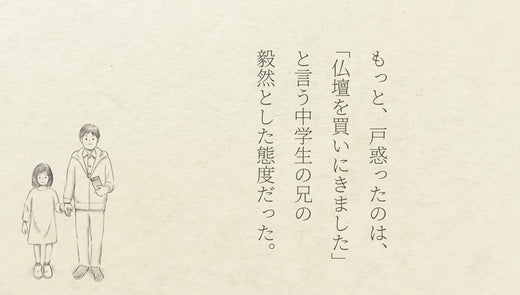 もっと、戸惑ったのは、
「仏壇を買いにきました」
と言う中学生の兄の
毅然とした態度だった。